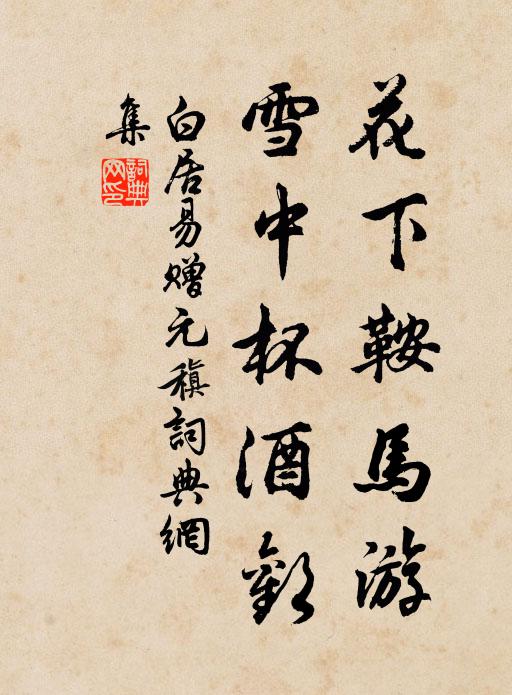 花下鞍馬游
雪中杯酒歡
白居易贈元稹詞典網
集
詞典网印